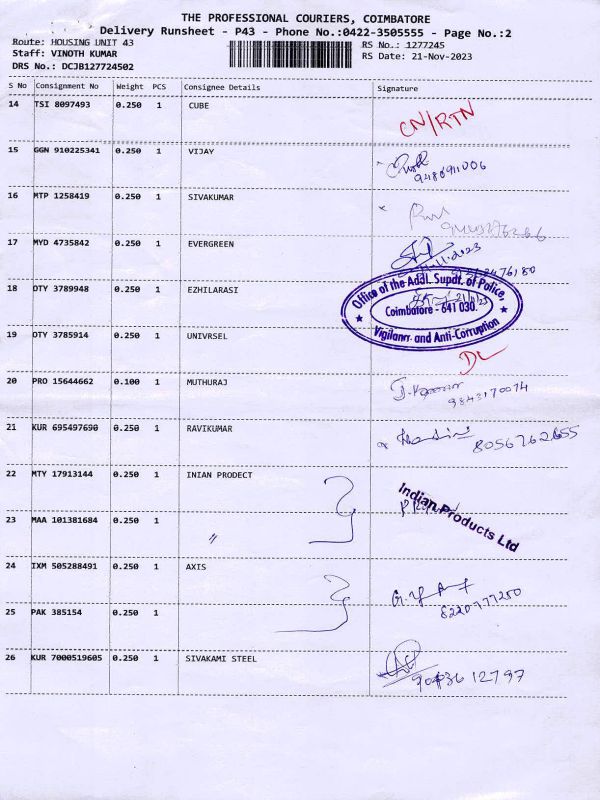 THE PROFESSIONAL COURIERS, COIMBATORE
Delivery Runsheet - P43 - Phone No.:0422-3505555 - Page No.:2
Route: HOUSING UNIT 43
RS No.: 1277245
Staff: VINOTH KUMAR
RS Date: 21-Nov-2023
DRS No.: DCJB127724502
S No Consignment No Weight PCS Consignee Details Signature
14 TSI 8097493 0.250 1 CUBE CN/RTN
15 GGN 910225341 0.250 1 VIJAY
16 MTP 1258419 0.250 1 SIVAKUMAR
17 MYD 4735842 0.250 1 EVERGREEN
18 OTY 3789948 0.250 1 EZHILARASI
Office of the Addl. Supdt. of Police,
Coimbatore - 641 030.
Vigilance and Anti-Corruption
19 OTY 3785914 0.250 1 UNIVRSEL DL
20 PRO 15644662 0.100 1 MUTHURAJ
9843170074
21 KUR 695497690 0.250 1 RAVIKUMAR 8056762655
22 MTY 17913144 0.250 1 INIAN PRODECT
Indian Products Ltd
23 MAA 101381684 0.250 1 〃
24 IXM 505288491 0.250 1 AXIS
8220977250
25 PAK 385154 0.250 1
26 KUR 7000519605 0.250 1 SIVAKAMI STEEL